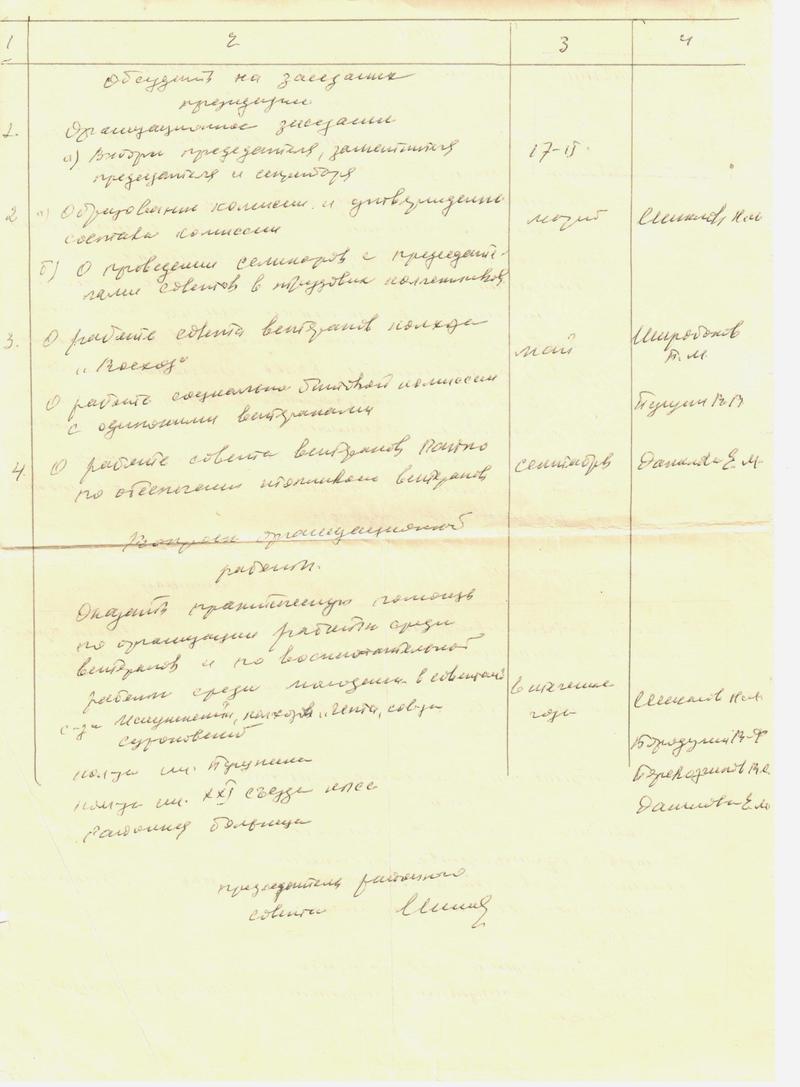 1 2 3 4
Обсудить на заседании
президиума
1. Организационное заседание
а) Выборы председателя, заместителя 17-II
председателя и секретаря
2 а) Образование комиссии и утверждение март
состава комиссии
б) О проведении семинаров с председате-
лями советов в трудовых коллективах
3. О работе совета ветеранов колхоза май Широбоков
"Восход" П.М.
О работе социально бытовой комиссии
с одинокими ветеранами В.В
4. О работе совета ветеранов сентябрь Данилова Е.М.
по обеспечению топливом ветеранов
Вопросы организационной
работы.
Оказать практическую помощь
по организации работы среди
ветеранов и по воспитательной
работы среди молодежи в советах в течение
с-за колхоза совхоз года
колхоз им.
колхоз им. XXI съезда КПСС Данилова Е.М.
районная больница
председатель районного
совета